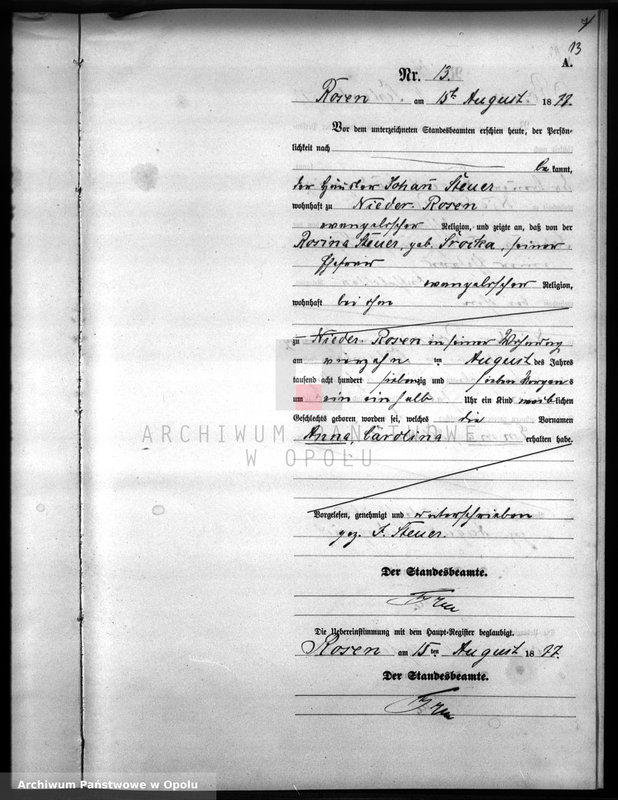 13
A.
Nr. 13.
Rosen am 15t August 1877.
Vor dem unterzeichneten Standesbeamten erschien heute, der Persön-
lichkeit nach
be kannt,
der Häusler Johañ Steuer
wohnhaft zu Nieder Rosen
evangelischer Religion, und zeigte an, daß von der
Rosina Steuer, geb. Srocka, seiner
Ehefrau
evangelischer Religion,
wohnhaft bei ihm
zu Nieder Rosen in seiner Wohnung
am vierzehn ten August des Jahres
tausend acht hundert siebenzig und sieben Morgens
um ein einhalb Uhr ein Kind weiblichen
Geschlechts geboren worden sei, welches die Vornamen
Anna, Carolina erhalten habe.
Vorgelesen, genehmigt und unterschrieben
gez. J. Steuer.
Der Standesbeamte.
Die Uebereinstimmung mit dem Haupt-Register beglaubigt.
Rosen am 15ten August 1877.
Der Standesbeamte.
ARCHIWUM PAŃSTWOWE
W OPOLU
Archiwum Państwowe w Opolu